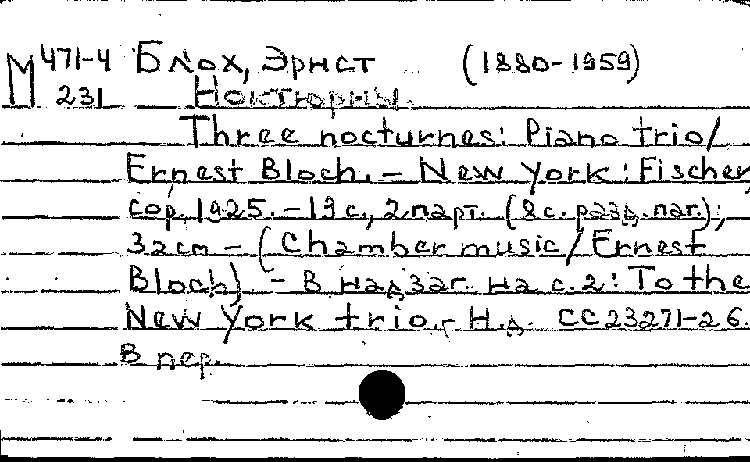 М 471-4 Блох, Эрнст (1880-1959)
231 Ноктюрны.
Three nocturnes: Piano trio/
Ernest Bloch. - New York: Fischer,
cop. 1925. - 19 с., 2 парт. (8 с. разд. паг.);
32 см - (Chamber music/Ernest
Bloch). - В надзаг. на с. 2: To the
New York trio. - Н.д. СС 23271-26.
В пер.